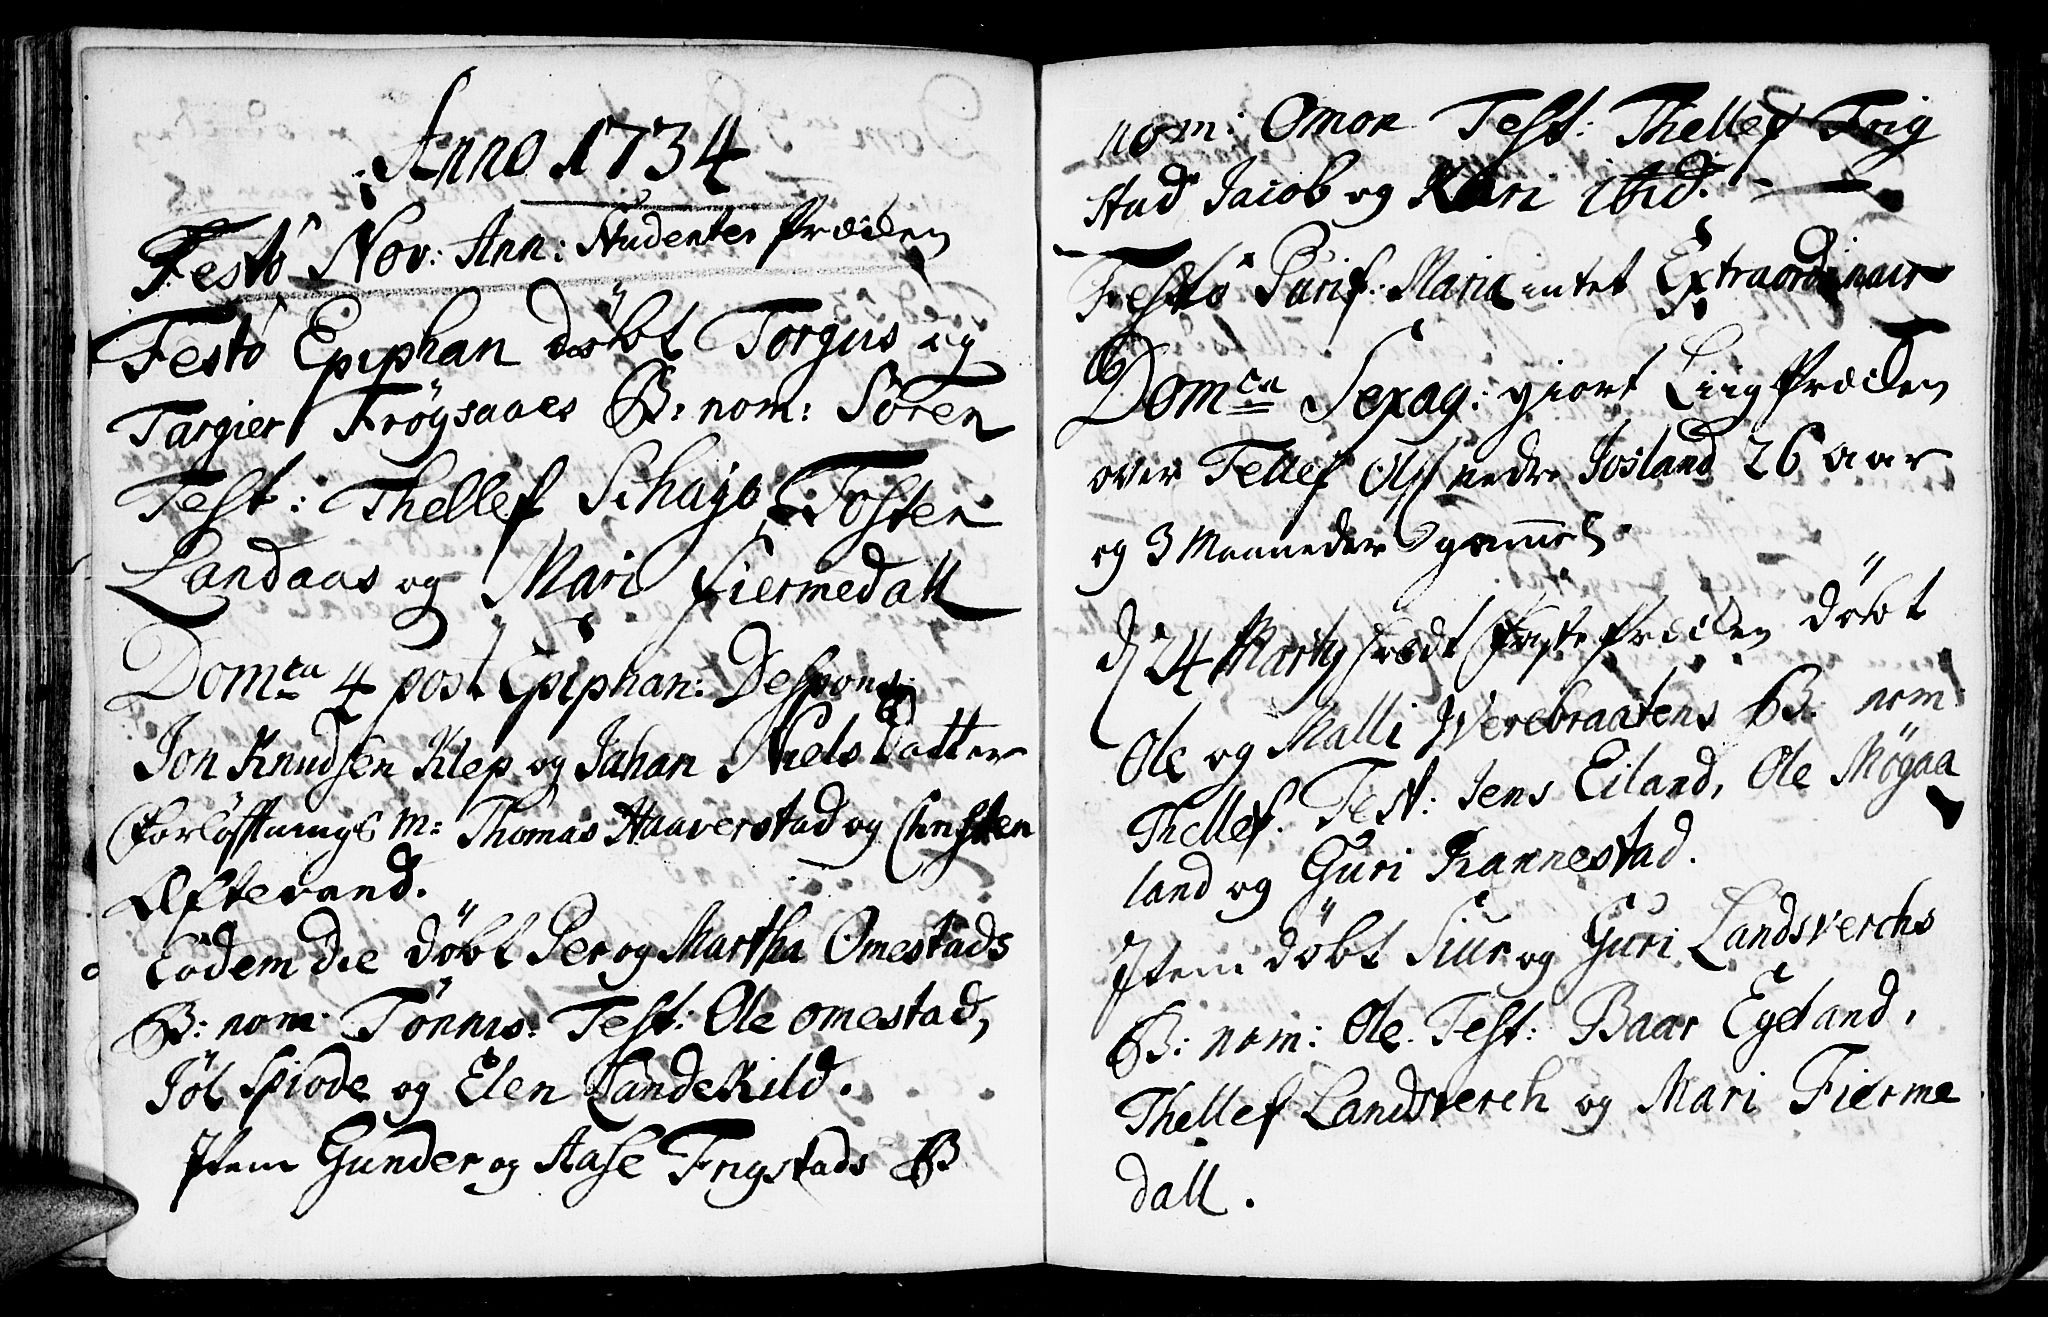 Anno 1734
Festo Nov: Ann: Studenter Prædiken
Festo Epiphan döbt Torgius og
Targier Frögsaaes B: nom: Sören
Test: Thellef Schaje, Tosten
Landaas og Mari Fiermedall
Domca 4 post Epiphan: Despons:
Jon Knudsen Klep og Johan Niels Datter
Forlöftnings M: Thomas Haaverstad og Christen
Eftevand.
Eodem die döbt Per og Martha Omestads
B: nom: Tönnis: Test: Ole omestad,
Jöl Spiode og Elen Landekild.
Item Gunder og Aase Frigstads B
nom: Omon Test: Thellef Frig
stad Jacob og Kari ibid.
Festo Purif: Mariæ intet Extraordinair
Domca Sexag: giort Liig Prædiken
over Tellef Ols: nedre Josland 26 aar
og 3 Maaneder gammel.
d 24 Martij holdt Faste Prædiken döbt
Ole og Malli Werebraatens B: nom:
Thellef. Test: Jens Eiland, Ole Mögaa
land og Guri Kannestad.
Item döbt Siur og Guri Landsverchs
B: nom: Ole. Test: Baar Egeland,
Thellef Landsverch og Mari Fierme
dall.